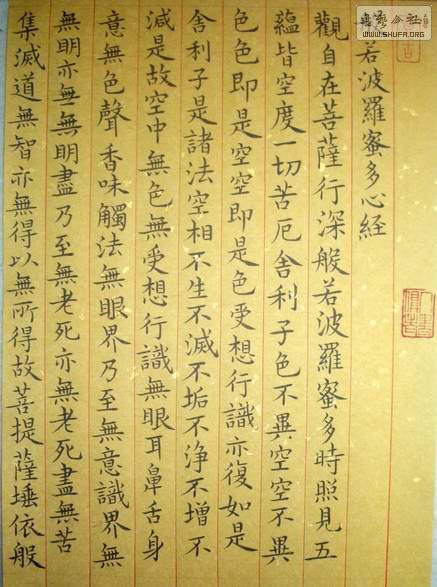 若波羅蜜多心経
觀自在菩薩行深般若波羅蜜多時照見五
蘊皆空度一切苦厄舍利子色不異空空不異
色色即是空空即是色受想行識亦復如是
舍利子是諸法空相不生不滅不垢不净不增不
減是故空中無色無受想行識無眼耳鼻舌身
意無色聲香味觸法無眼界乃至無意識界無
無明亦無無明盡乃至無老死亦無老死盡無苦
集滅道無智亦無得以無所得故菩提薩埵依般
WWW.SHUFA.ORG